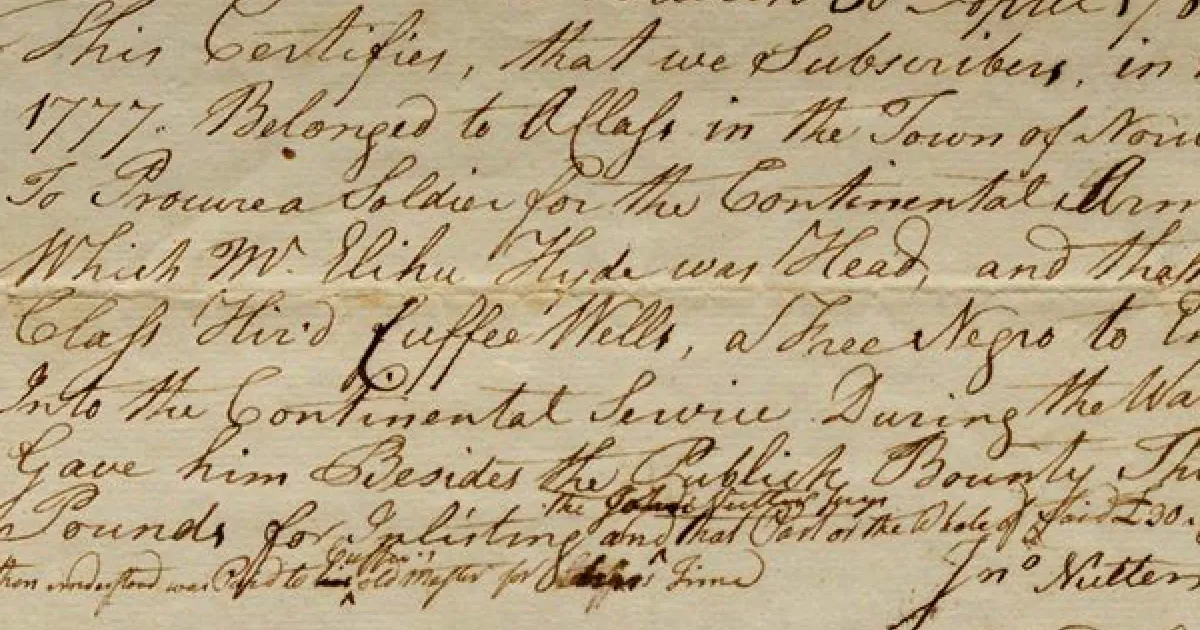 April 178
This Certifies, that we Subscribers, in
1777. Belonged to A Class in the Town of Norw
To Procure a Soldier for the Continental Arm
Which Mr. Elihu Hyde was Head, and that
Class Hir'd Cuffee Wells, a Free Negro to En
Into the Continental Service During the Wa
Gave him Besides the Publick Bounty Thi
the John Nutter says
Pounds for Inlisting and that Part or the Whole of Said £30
Cuffee's
then understood was Paid to old Master for Time
Jno Nutter